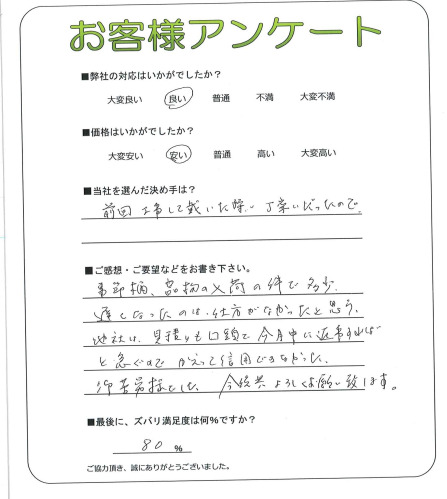 お客様アンケート
■弊社の対応はいかがでしたか？
大変良い 良い 普通 不満 大変不満
■価格はいかがでしたか？
大変安い 安い 普通 高い 大変高い
■当社を選んだ決め手は？
前回工事して戴いた際、丁寧だったので。
■ご感想・ご要望などをお書き下さい。
季節柄、品物の入荷の件で多少
遅くなったのは、仕方がなかったと思う。
他社は、見積りも口頭で今月中に返事すれば
と急ぐので かえって信用できなかった。
御苦労様でした。 今後共よろしくお願い致します。
■最後に、ズバリ満足度は何％ですか？
80 ％
ご協力頂き、誠にありがとうございました。